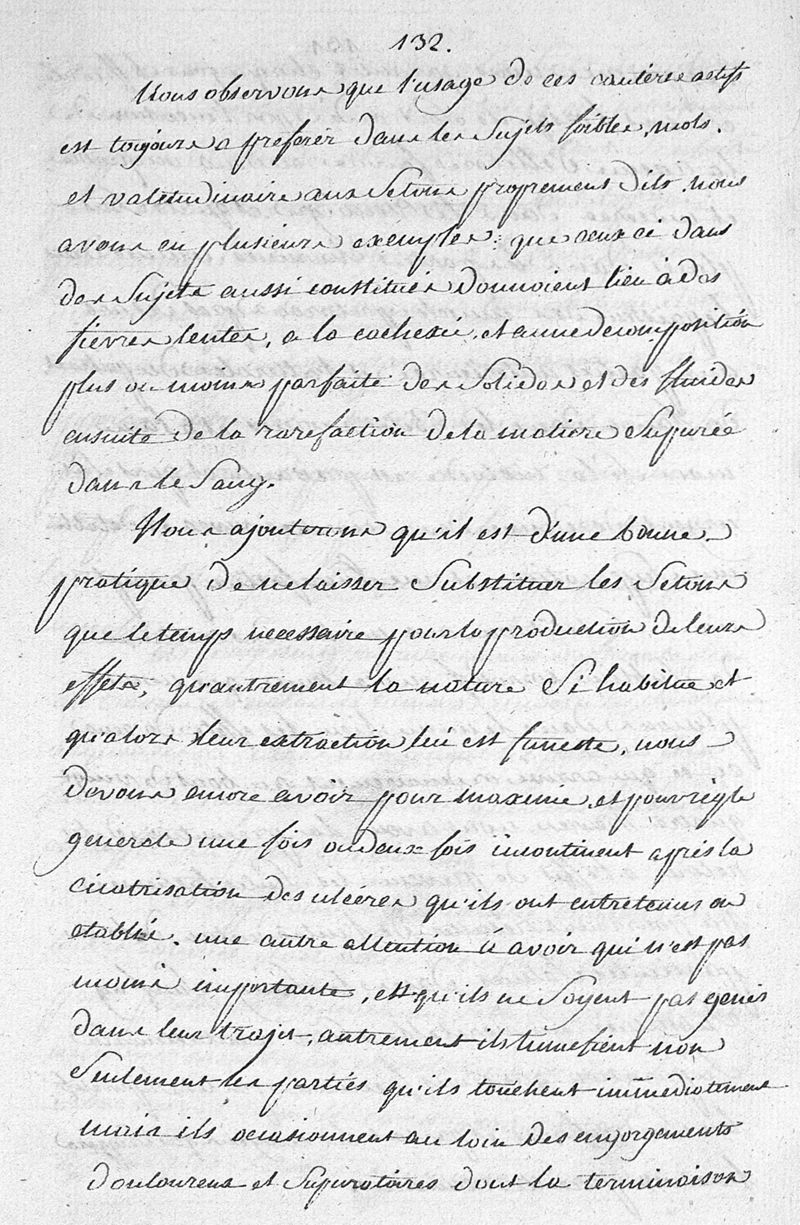 132.
Nous observons que l'usage de ces cautères actifs
est toujours a preferer dans les Sujets foibles, mols.
et valetudinaire aux Setons proprement dits. nous
avons eu plusieurs exemples que ceux ce dans
des Sujets aussi constitués donnoient lieu à des
fièvres lentes, a la cachexie, et a une decomposition
plus ou moins parfaite des Solides et des fluides
ensuite de la rarefaction de la matiere Supurée
dans le Sang.
Nous ajouterons qu'il est d'une bonne
pratique de ne laisser Substituer les Setons
que le temps necessaire pour la production de leurs
effets, qu'autrement la nature S'i habitue et
qu'alors leur extraction lui est funeste, nous
devons encore avoir pour maxime, et pour règle
generale une fois ou deux fois incontinent après la
cicatrisation des ulcères qu'ils ont entretenus ou
etablis. une autre attention à avoir qui n'est pas
moins importante, est qu'ils ne Soyent pas genés
dans leur trajet, autrement ils tumefient non
Seulement les parties qu'ils touchent immediatement
mais ils occasionnent au loin des engorgements
douloureux et Supuratoires dont la terminaison